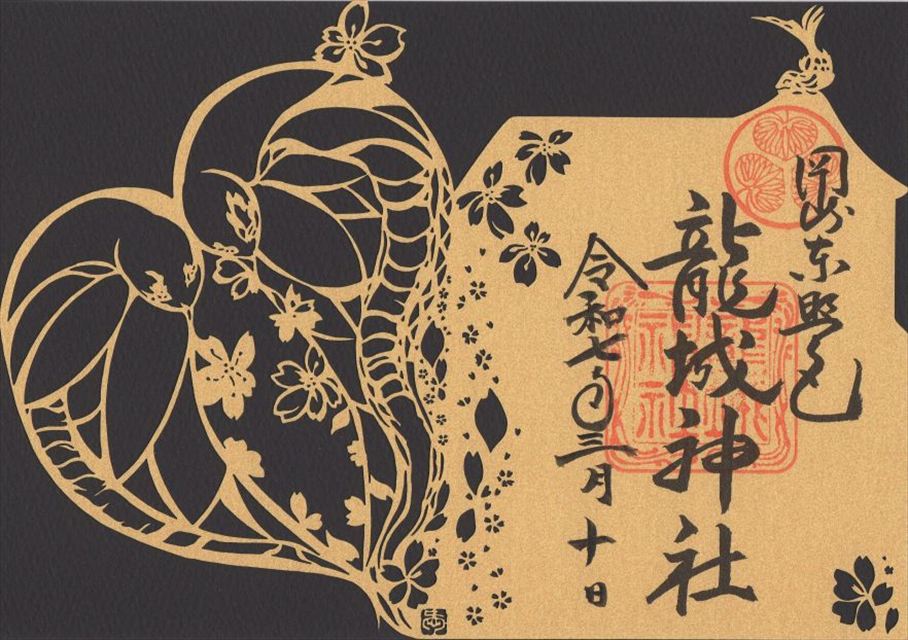 岡崎東照宮
龍城神社
令和七年三月十日